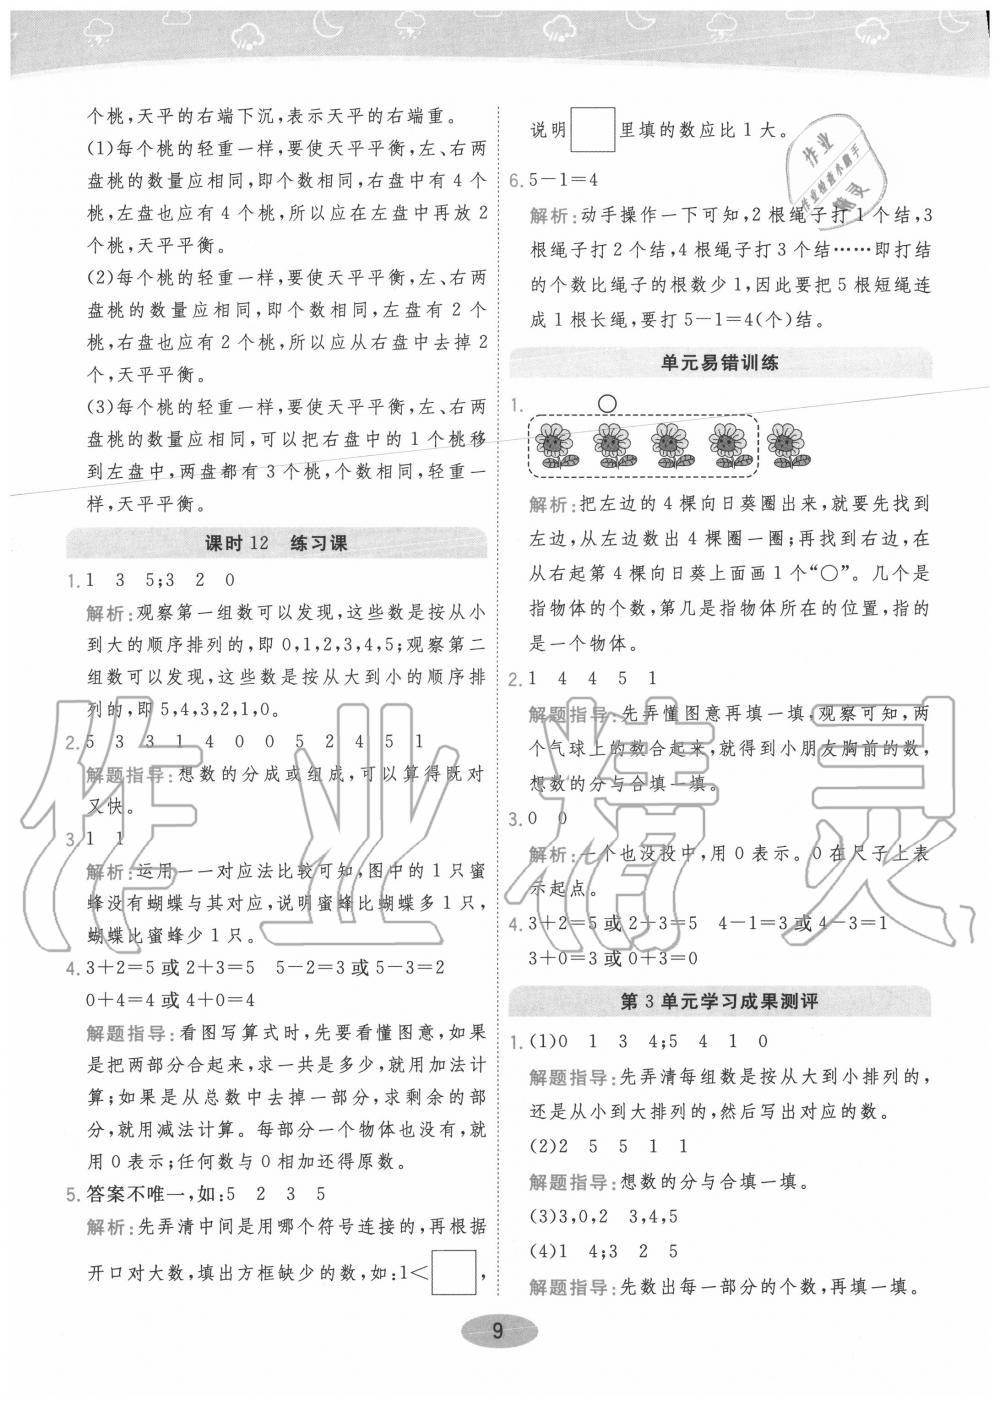 个桃,天平的右端下沉,表示天平的右端重。
(1)每个桃的轻重一样,要使天平平衡,左、右两
盘桃的数量应相同,即个数相同,右盘中有 4 个
桃,左盘也应有 4 个桃,所以应在左盘中再放 2
个桃,天平平衡。
(2)每个桃的轻重一样,要使天平平衡,左、右两
盘桃的数量应相同,即个数相同,左盘有 2 个
桃,右盘也应有 2 个桃,所以应从右盘中去掉 2
个,天平平衡。
(3)每个桃的轻重一样,要使天平平衡,左、右两
盘桃的数量应相同,可以把右盘中的 1 个桃移
到左盘中,两盘都有 3 个桃,个数相同,轻重一
样,天平平衡。
课时 12 练习课
1. 1 3 5;3 2 0
解析:观察第一组数可以发现,这些数是按从小
到大的顺序排列的,即 0,1,2,3,4,5;观察第二
组数可以发现,这些数是按从大到小的顺序排
列的,即 5,4,3,2,1,0。
2. 5 3 3 1 4 0 0 5 2 4 5 1
解题指导:想数的分成或组成,可以算得既对
又快。
3. 1 1
解析:运用一一对应法比较可知,图中的 1 只蜜
蜂没有蝴蝶与其对应,说明蜜蜂比蝴蝶多 1 只,
蝴蝶比蜜蜂少 1 只。
4. 3+2=5 或 2+3=5 5-2=3 或 5-3=2
0+4=4 或 4+0=4
解题指导:看图写算式时,先要看懂图意,如果
是把两部分合起来,求一共是多少,就用加法计
算;如果是从总数中去掉一部分,求剩余的部
分,就用减法计算。每部分一个物体也没有,就
用 0 表示;任何数与 0 相加还得原数。
5. 答案不唯一,如:5 2 3 5
解析:先弄清中间是用哪个符号连接的,再根据
开口对大数,填出方框缺少的数,如:1<□,
说明□里填的数应比 1 大。
6. 5-1=4
解析:动手操作一下可知,2 根绳子打 1 个结,3
根绳子打 2 个结,4 根绳子打 3 个结……即打结
的个数比绳子的根数少 1,因此要把 5 根短绳连
成 1 根长绳,要打 5-1=4(个)结。
单元易错训练
1.
解析:把左边的 4 棵向日葵圈出来,就要先找到
左边,从左边数出 4 棵圈一圈;再找到右边,在
从右起第 4 棵向日葵上面画 1 个“○”。几个是
指物体的个数,第几是指物体所在的位置,指的
是一个物体。
2. 1 4 4 5 1
解题指导:先弄懂图意再填一填,观察可知,两
个气球上的数合起来,就得到小朋友胸前的数,
想数的分与合填一填。
3. 0 0
解析:一个也没投中,用 0 表示。0 在尺子上表
示起点。
4. 3+2=5 或 2+3=5 4-1=3 或 4-3=1
3+0=3 或 0+3=3
第 3 单元学习成果测评
1. (1)0 1 3 4;5 4 1 0
解题指导:先弄清每组数是按从大到小排列的,
还是从小到大排列的,然后写出对应的数。
(2)2 5 5 1 1
解题指导:想数的分与合填一填。
(3)3,0,2 3,4,5
(4)1 4;3 2 5
解题指导:先数出每一部分的个数,再填一填。
9
作业精灵
作业
作业检查小助手
精灵